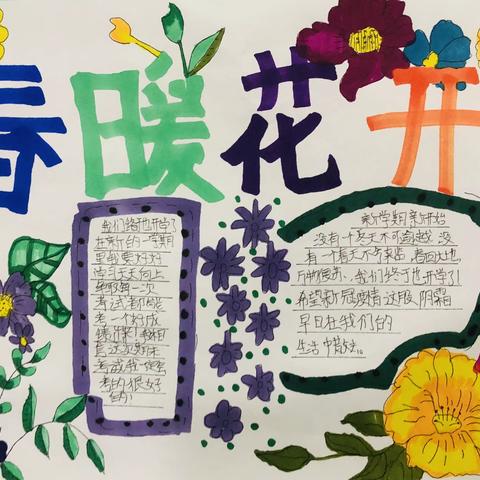 春暖花开
我们终于也开学了
在新的一学期
里我要好好
学习天天向上
争取每一次
考试都能
考一个好成
绩
考的很好
新学期 新开始
没有一个冬天不可逾越 没
有一个春天不会来临 春回大地
万物复苏，我们终于也开学了！
希望新冠疫情这股阴霾
早日在我们的
生活中散去。